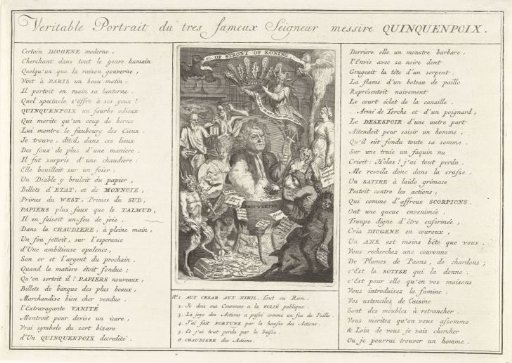 Veritable Portrait du tres fameux Seigneur messire QUINQUENPOIX.
Certain DIOGENE moderne,
Cherchant dans tout le genre humain
Quelqu'un que la raison gouverne,
Vint à PARIS un beau matin.
Il portoit en main sa lanterne.
Quel spectacle s'offre à ses yeux!
QUINQUENPOIX un fourbe odieux
Qui merite qu'un coup de
Lui montre le fauxbourg des Cieux
Je trouve, dit-il, dans ces lieux
Des fous de plus d'une maniere.
Il fut surpris d'une chaudiere
Elle bouilloit sur un foier,
Un Diable y bruloit du papier,
Billets d'ETAT, et de MONNOIE,
Primes du WEST, Primes du SUD,
PAPIERS plus faux que le TALMUD,
Il en faisoit un feu de joie.
Dans la CHAUDIERE, à pleine main,
Un fou jettoit, sur l'esperance
D'une ambitieuse opulence,
Son or et l'argent du prochain.
Quand la matiere étoit fondue:
Qu'en sortoit il? PAPIERS nouveaux
Billets de banque des plus beaux,
Marchandise bien cher vendue.
L'extravagante VANITÉ
Montroit pour devise un
Vrai symbole du sort bizare
D'un QUINQUENPOIX decredité.
OF WIND
Nº 1 AUT CESAR AUT NIHIL, Tout ou Rien.
2 Je dois ma Couronne a la
3 La joye des Actions a passé comme un feu de Paille
4 J'ai fait FORTUNE par la hausse des Actions
5 Et j'ai tout perdu par la baisse
6 CHAUDIERE des Actions
Derriere elle un monstre barbare,
l'Envie avec sa noire dent
Grugeoit la tête d'un serpent.
La flame d'un boteau de paille
Representoit naivement
Le court éclat de la canaille
Armé de Torche et d'un poignard,
Le DESESPOIR d'une autre part
Attendoit pour saisir un homme,
Qu'il eut fondu toute sa somme
Sur une traie un faquin nu
Crioit: Hélas! j'ai tout perdu
Me revoila donc dans la crasse.
Un SATIRE à laide grimace
Pestoit contre les actions,
Qui comme d'affreux SCORPIONS
Ont une queue envenimée.
Troupe digne d'être enfermée,
Cria DIOGENE en couroux,
Un ANE est moins bête que vous.
Vous recherchez une couronne
De Plumes de Paons, de chardons;
C'est la SOTISE qui la donne.
C'est pour elle qu'en vos maisons
Vous introduisez la famine.
Vos ustenciles de Cuisine
Sont des meubles à retrancher
Vous meritez qu'on vous assomme
Loin de vous je vais chercher
Ou je pourrai trouver un homme.